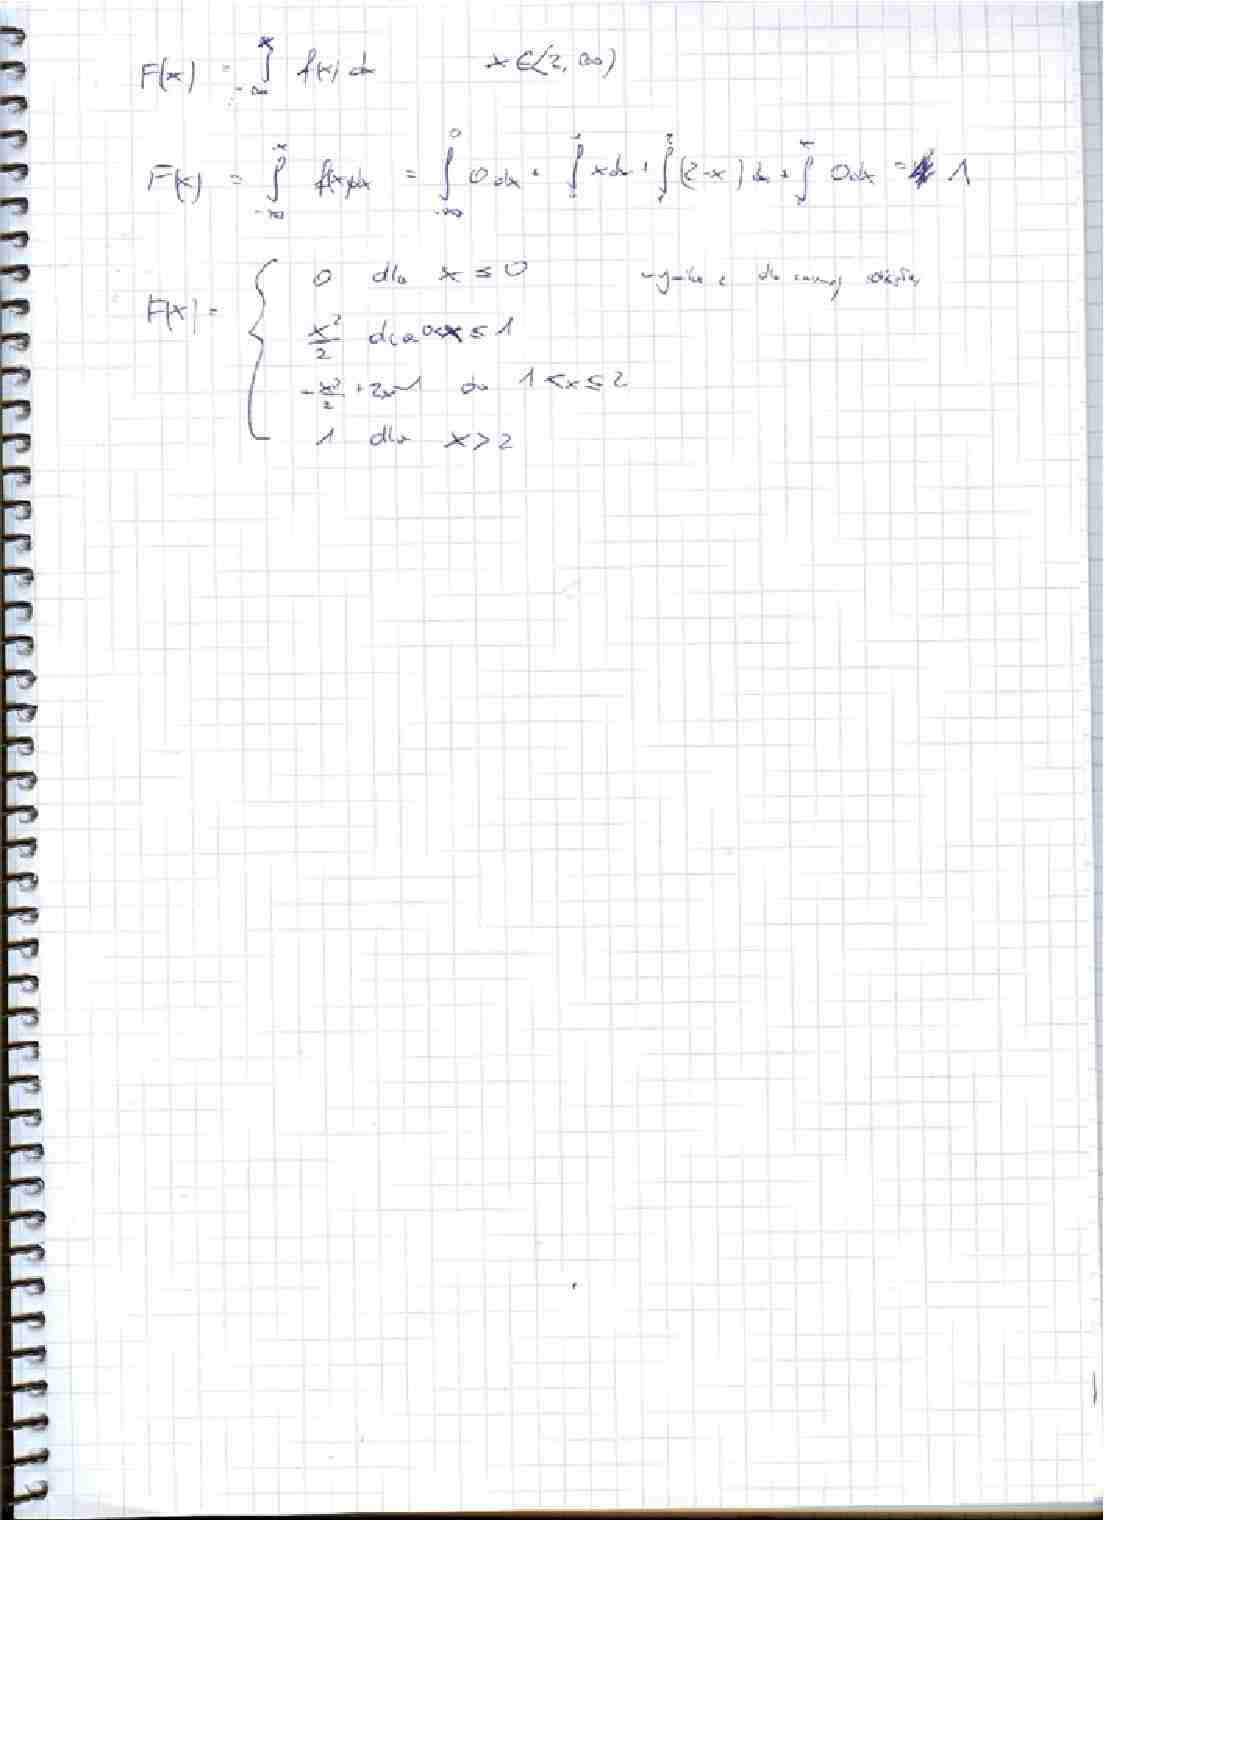 F(x) = ∫_{-∞}^{x} f(x) dx x ∈ (2, ∞)
F(x) = ∫_{-∞}^{x} f(x) dx = ∫_{-∞}^{0} 0 dx + ∫ x dx + ∫_{1}^{2} (2-x) dx + ∫^{x} 0 dx = 1
F(x) = { 0 dla x ≤ 0 dla
x²/2 dla 0<x ≤ 1
-x²/2 + 2x-1 dla 1 < x ≤ 2
1 dla x > 2